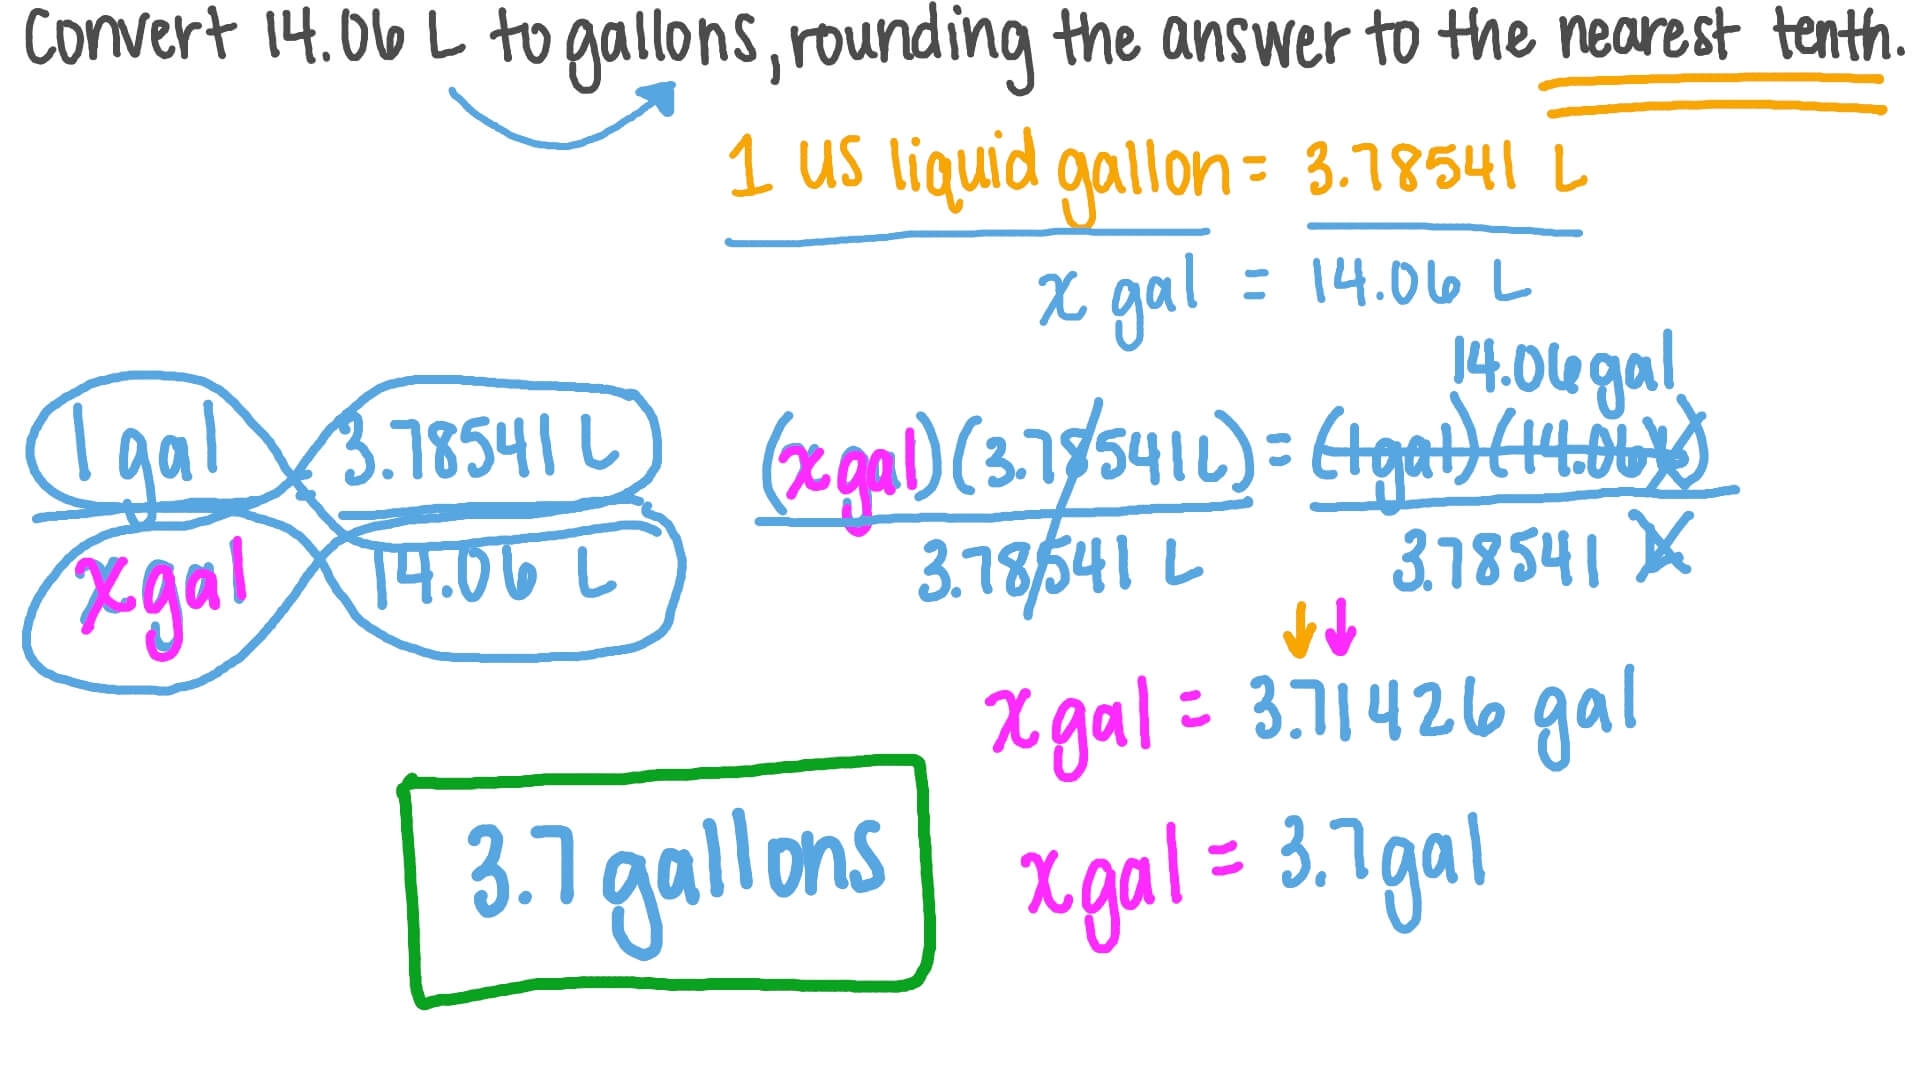 Convert 14.06 L to gallons, rounding the answer to the nearest tenth.
1 US liquid gallon = 3.78541 L
x gal = 14.06 L
14.06 gal
1 gal = 3.78541 L
x gal 14.06 L
(x gal)(3.78541 L) = (1 gal)(14.06 L)
3.78541 L 3.78541 L
x gal = 3.71426 gal
x gal = 3.7 gal
3.7 gallons